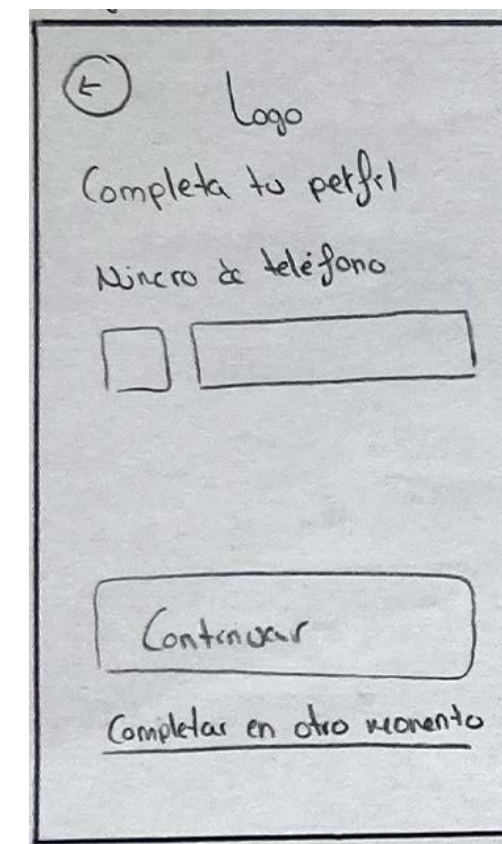 Logo
Completa tu perfil
Número de teléfono
Continuar
Completar en otro momento